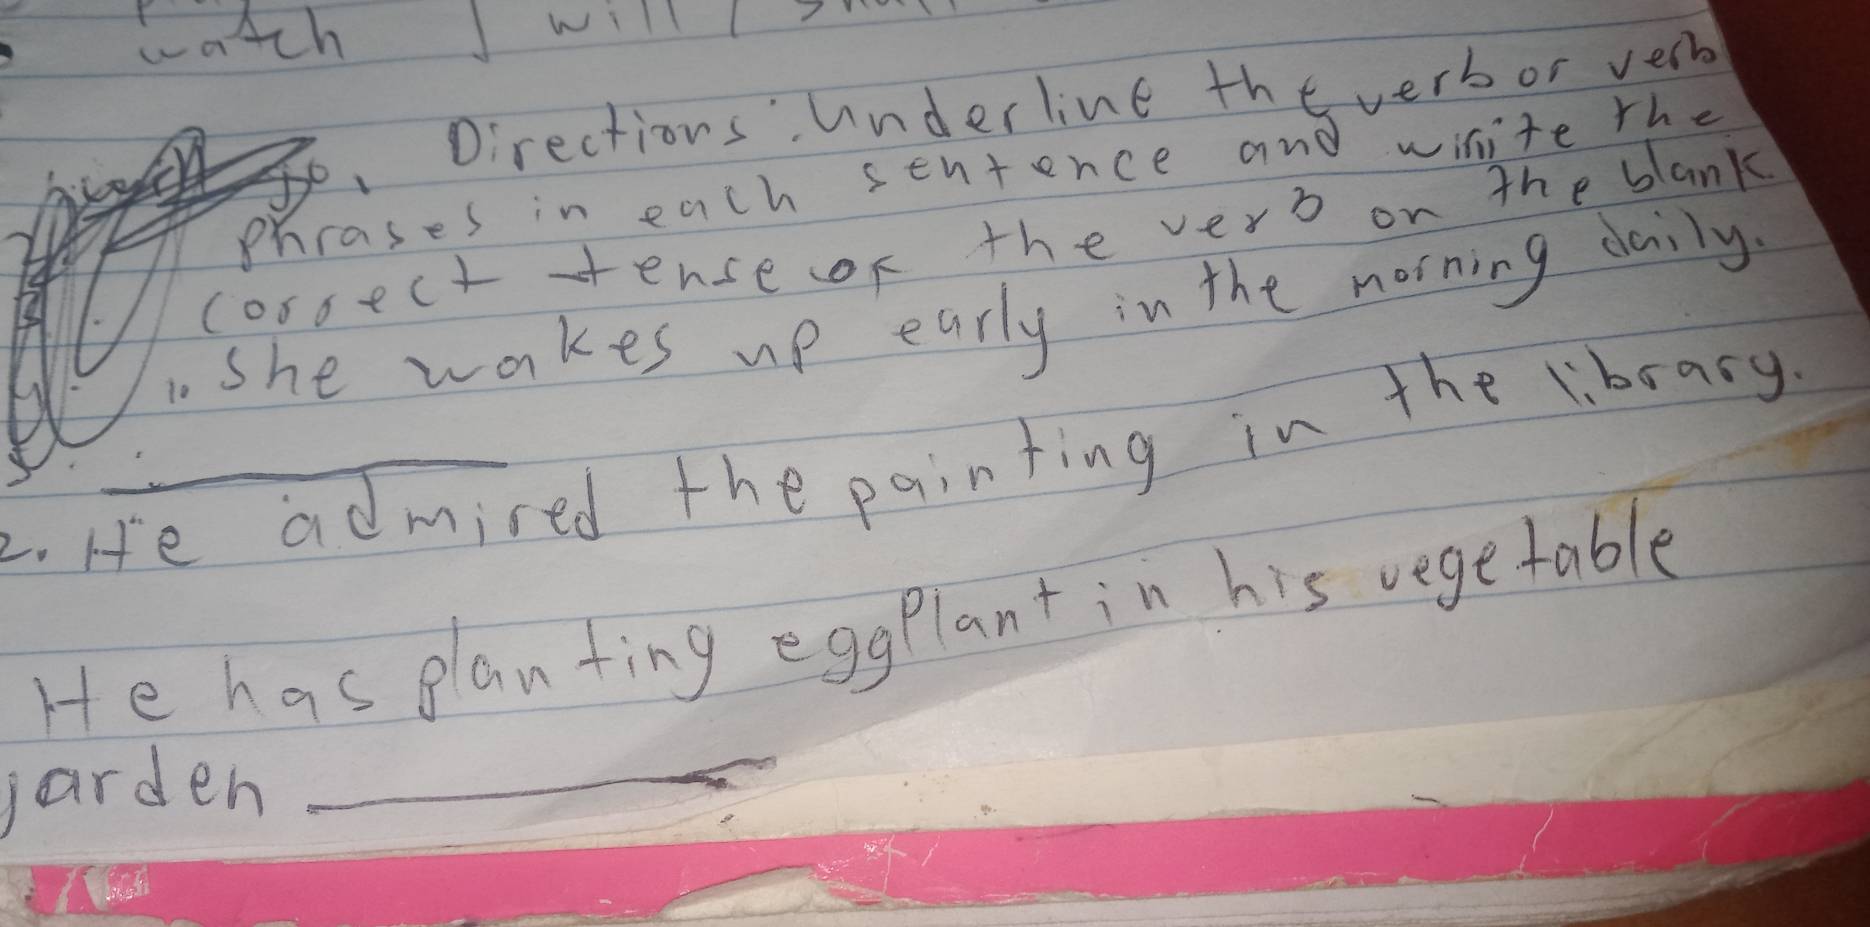 watch I will /
Directions: Underline the verb or verb
phrases in each sentence and write the
correct tense of the verb on the blank
1. She wakes up early in the morning daily.
2. He admired the painting in the library.
He has planting eggPlant in his vegetable
garden